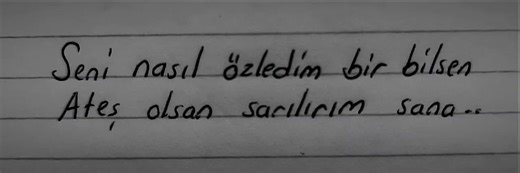 Seni nasıl özledim bir bilsen
Ateş olsan sarılırım sana..